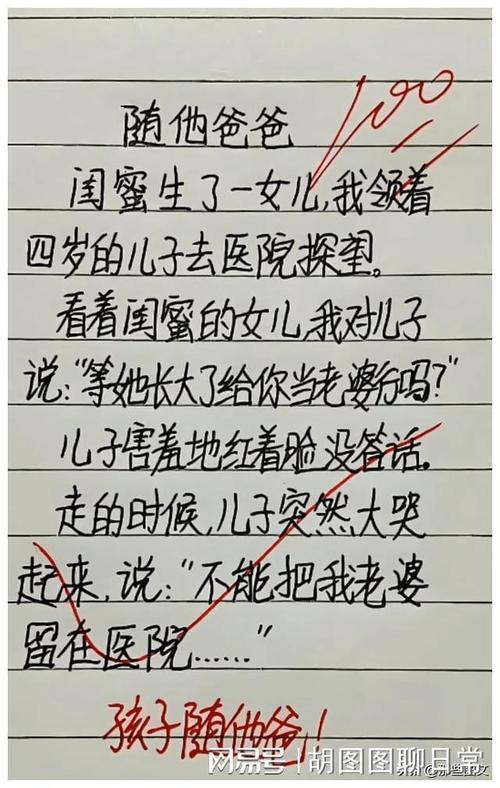 100
随他爸爸
闺蜜生了一女儿,我领着
四岁的儿子去医院探望。
看着闺蜜的女儿,我对儿子
说:“等她长大了给你当老婆行吗?”
儿子害羞地红着脸没答话.
走的时候,儿子突然大哭
起来,说:“不能把我老婆
留在医院......”
孩子随他爸!!
网易号 | 胡图图聊日常